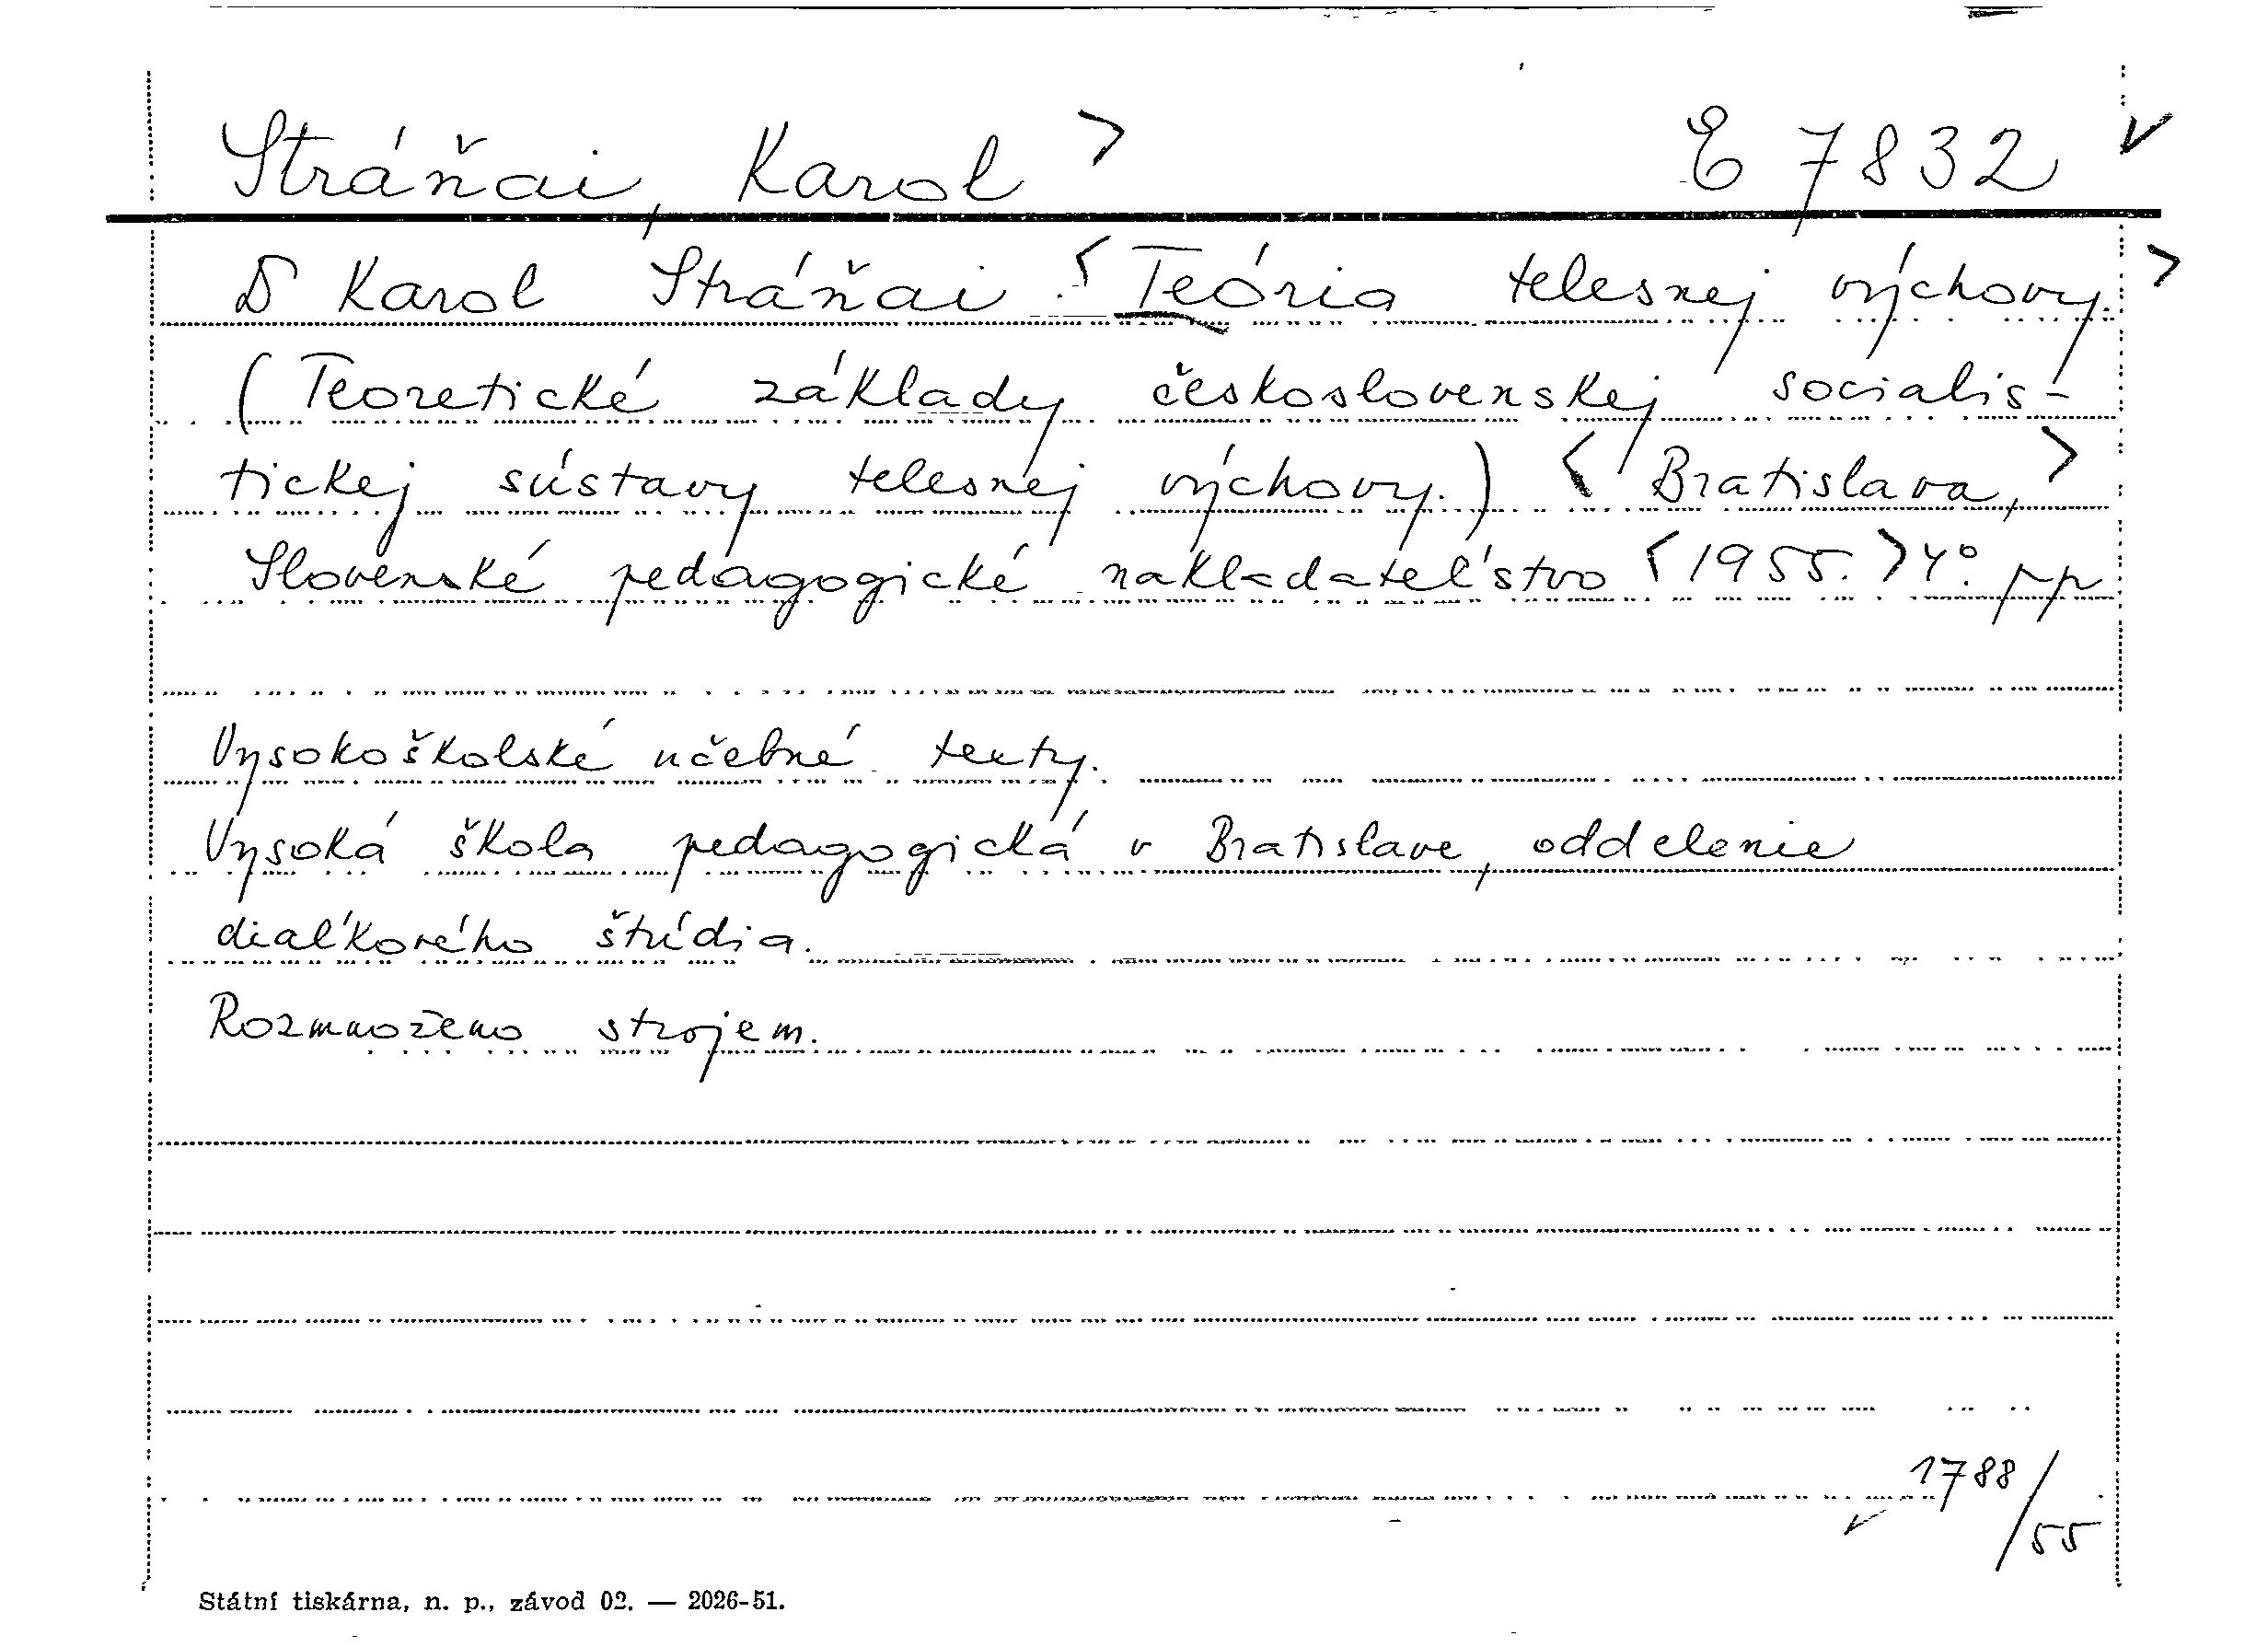 Stráňai, Karol > E 7832 ✓
D Karol Stráňai : < Teória telesnej výchovy. >
(Teoretické základy československej socialis-
tickej sústavy telesnej výchovy.) < Bratislava, >
Slovenské pedagogické nakladateľstvo < 1955. > 4°.
Vysokoškolské učebné texty.
Vysoká škola pedagogická v Bratislave, oddelenie
diaľkového štúdia.
Rozmnoženo strojem.
✓ 1788/55
Státní tiskárna, n. p., závod 02. — 2026-51.